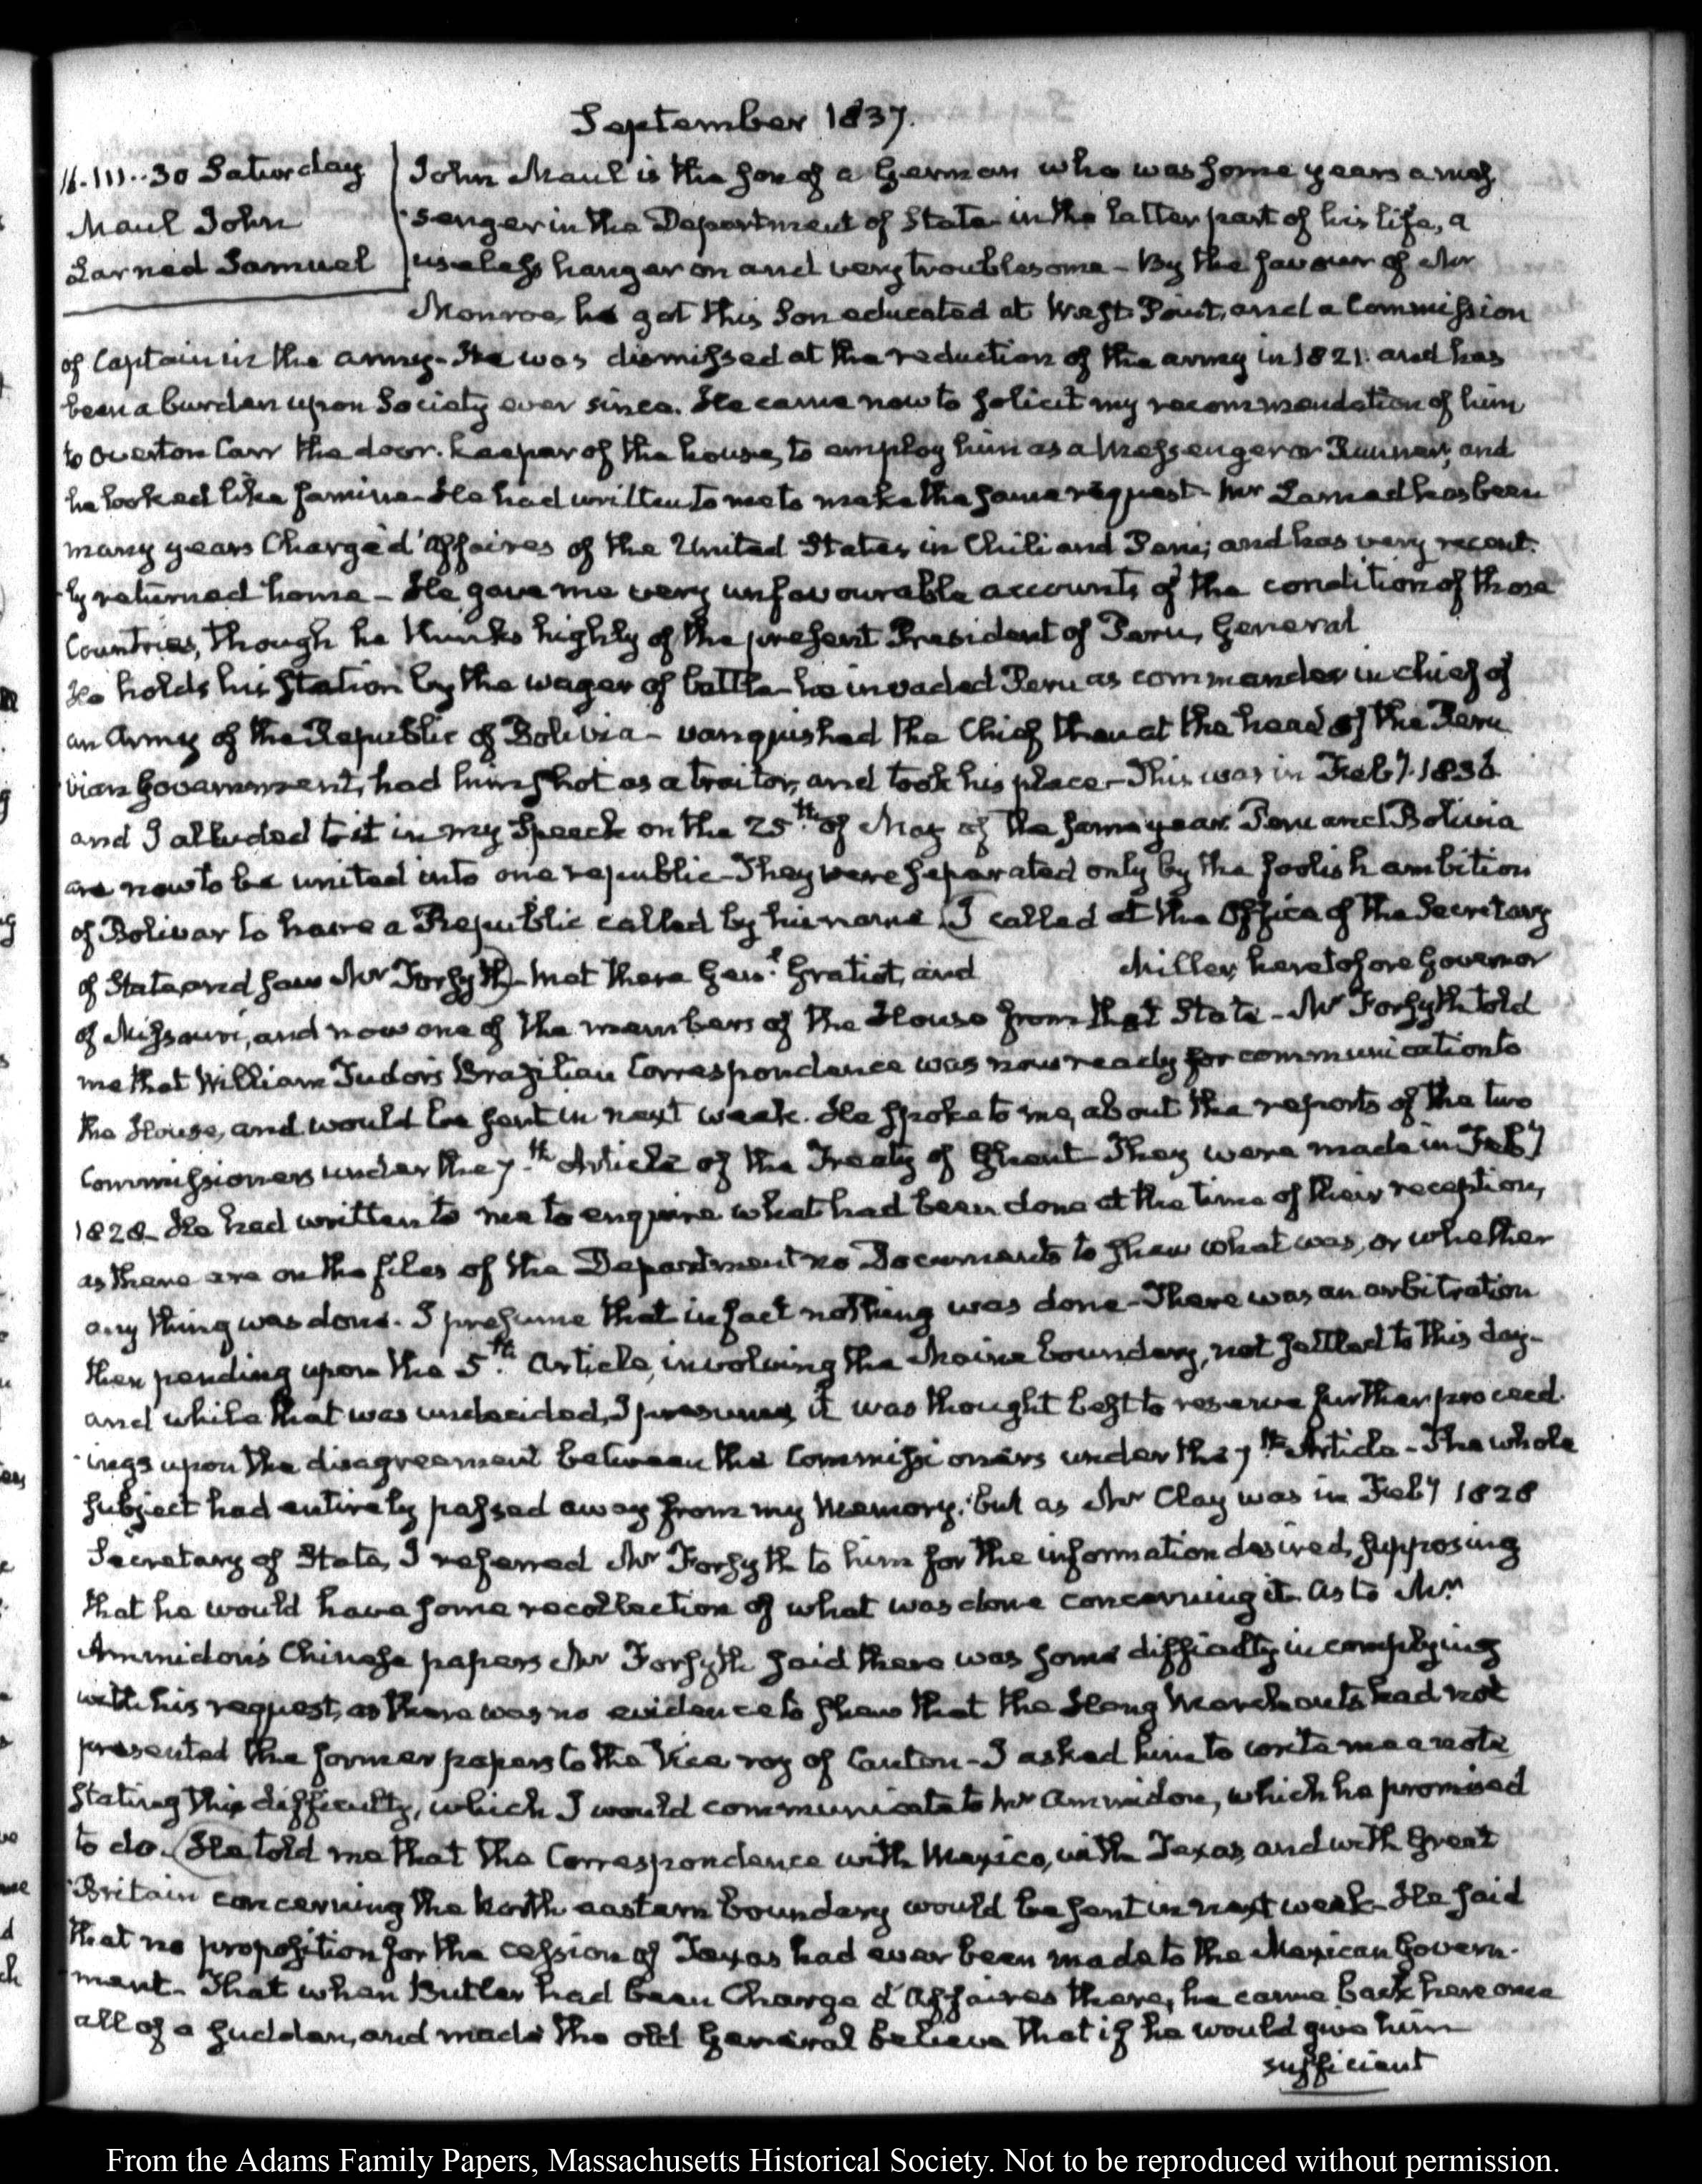 September 1837.
16. III..30 Saturday
Maul John
Larned Samuel
John Maul is the son of a German who was some years a mes-
senger in the Department of State in the latter part of his life, a
useless hanger on and very troublesome - By the favour of Mr
Monroe, he got this Son educated at West-Point, and a Commission
of Captain in the army - He was dismissed at the reduction of the army in 1821. and has
been a burden upon Society ever since. He came now to solicit my recommendation of him
to Overton Carr the door-keeper of the house, to employ him as a Messenger or Runner, and
he looked like famine - He had written to me to make the same request - Mr Larned has been
many years Chargé d'Affaires of the United States, in Chili and Peru; and has very recent-
ly returned home - He gave me very unfavourable accounts of the condition of those
Countries, though he thinks highly of the present President of Peru, General
He holds his Station by the wager of battle - he invaded Peru as commander in chief of
an Army of the Republic of Bolivia - vanquished the Chief then at the head of the Peru
vian Government, had him shot as a traitor, and took his place - This was in Feby. 1836
and I alluded to it in my Speech on the 25th. of May of the same year. Peru and Bolivia
are now to be united into one republic - They were separated only by the foolish ambition
of Bolivar to have a Republic called by his name. (I called at the Office of the Secretary
of State, and saw Mr Forsyth) - met there Genl. Gratiot, and Miller, heretofore Governor
of Missouri, and now one of the members of the House from that State - Mr Forsyth told
me that William Tudor's Brazilian Correspondence was now ready for communication to
the House, and would be sent in next week. He spoke to me, about the reports of the two
Commissioners under the 7.th Article of the Treaty of Ghent - They were made in Feby
1828 - He had written to me to enquire what had been done at the time of their reception,
as there are on the files of the Department no Documents to shew what was, or whether
any thing was done. I presume that in fact nothing was done - There was an arbitration
then pending upon the 5.th Article, involving the Maine boundary, not settled to this day -
and while that was undecided, I presume, it was thought best to reserve further proceed-
ings upon the disagreement between the Commissioners under the 7th Article - The whole
subject had entirely passed away from my Memory; but as Mr Clay was in Feby 1828
Secretary of State, I referred Mr Forsyth to him for the information desired, supposing
that he would have some recollection of what was done concerning it. As to Mr.
Ammidon's Chinese papers Mr Forsyth said there was some difficulty in complying
with his request, as there was no evidence to shew that the Hong Merchants had not
presented the former papers to the Vice roy of Canton - I asked him to write me a note
stating this difficulty, which I would communicate to Mr Ammidon, which he promised
to do. (He told me that the Correspondence with Mexico, with Texas, and with Great
Britain concerning the North eastern boundary would be sent in next week - He said
that no proposition for the cession of Texas had ever been made to the Mexican Govern-
ment - That when Butler had been Charge d'Affaires there, he came back here once
all of a sudden, and made the old General believe that if he would give him
sufficient
From the Adams Family Papers, Massachusetts Historical Society. Not to be reproduced without permission.